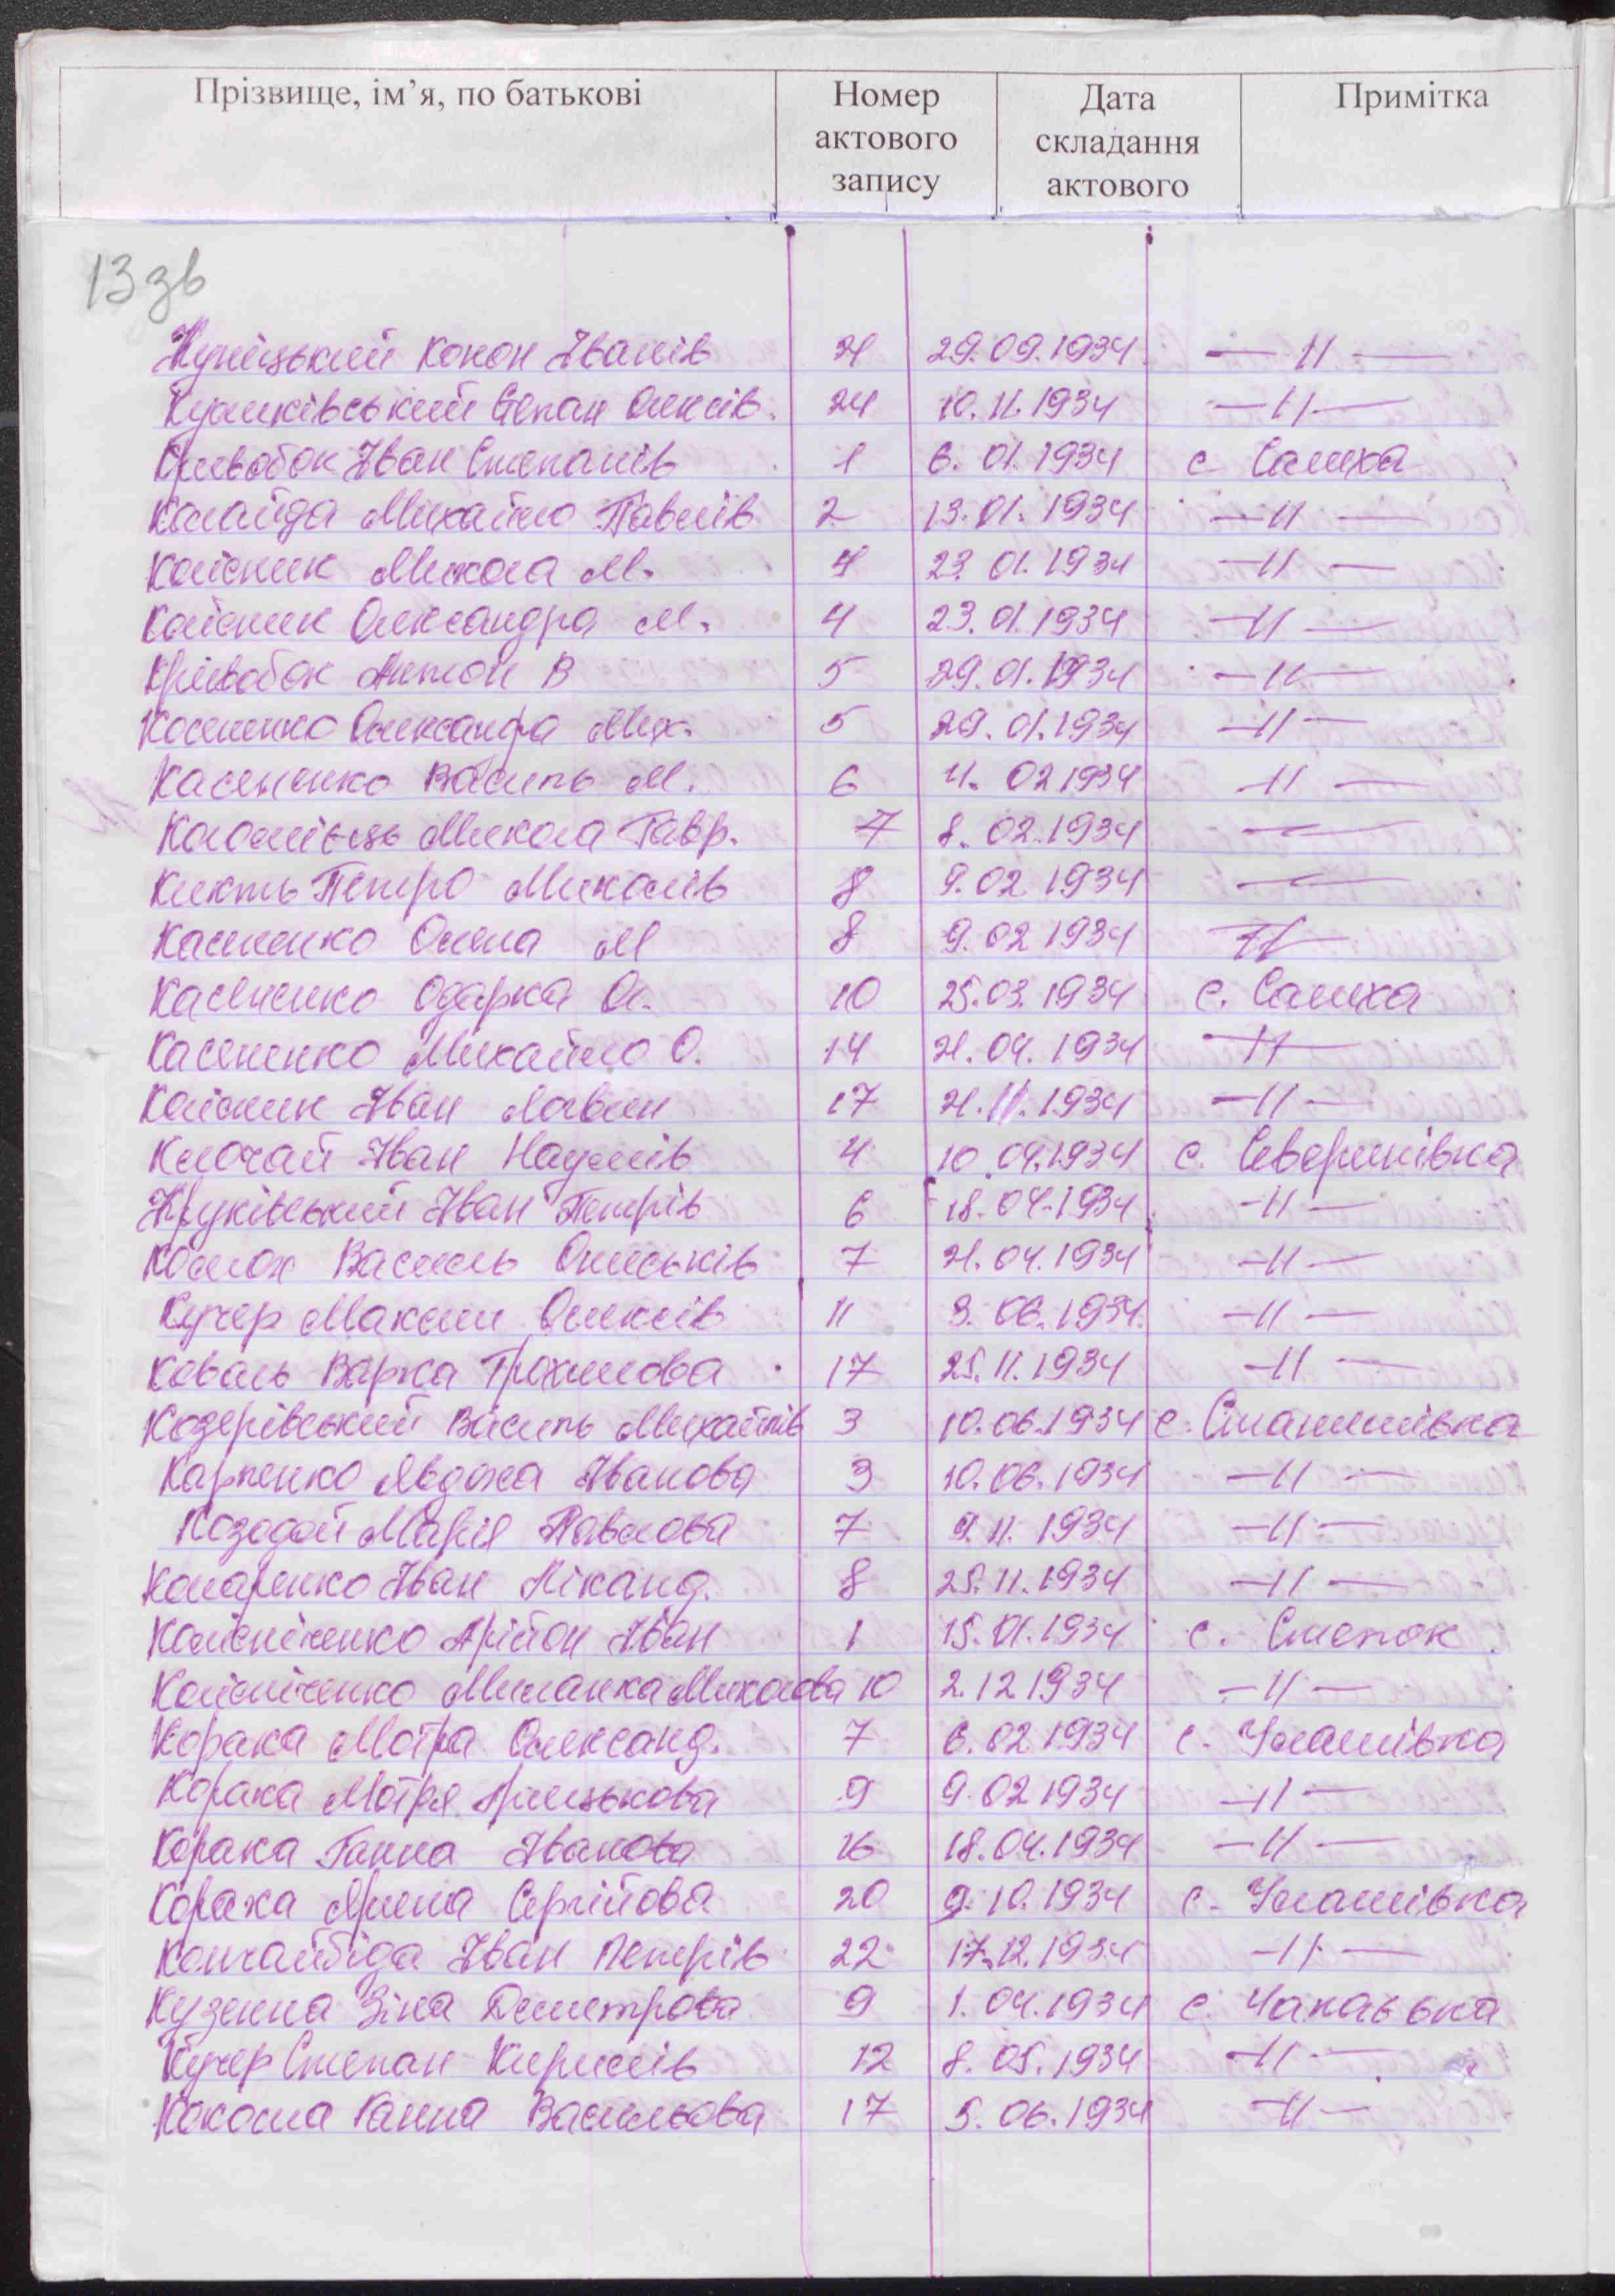 Прізвище, ім’я, по батькові Номер актового запису Дата складання актового Примітка
13 зв
Куніцький Конон Іванів 21 29.09.1934 —//—
Кушківський Степан Олексів. 24 10.11.1934 —//—
Кривобок Іван Степанів 1 6.01.1934 с Салиха
Калайда Михайло Павлів 2 13.01.1934 —//—
Колісник Микола М. 4 23.01.1934 —//—
Колісник Олександра М. 4 23.01.1934 —//—
Крівобок Антон В 5 29.01.1934 —//—
Касяненко Олександра Мих. 5 29.01.1934 —//—
Касяненко Василь М. 6 4.02.1934 —//—
Коломієць Микола Гавр. 7 8.02.1934 —
Кикть Петро Миколів 8 9.02.1934 —
Касяненко Олена М 8 9.02.1934 —//—
Касяненко Одарка Ол. 10 25.03.1934 с. Салиха
Касяненко Михайло О. 14 21.04.1934 —//—
Колісник Іван Логвин 17 21.11.1934 —//—
Ключай Іван Наумів 4 10.04.1934 с. Северинівка
Круківський Іван Петрів 6 18.04.1934 —//—
Василь Ониськів 7 21.04.1934 —//—
Кучер Максим Олексів 11 3.06.1934 —//—
Коваль Варка Трохимова 17 25.11.1934 —//—
Козерівський Василь Михайлів 3 10.06.1934 с. Станишівка
Карпенко Явдоха Іванова 3 10.06.1934 —//—
Козодой Марія Павлова 7 9.11.1934 —//—
Кочаренко Іван Міканд. 8 25.11.1934 —//—
Колісніченко Арійон Іван 1 15.01.1934 с. Степок
Колісніченко Миланка Миколова 10 2.12.1934 —//—
Корака Мотра Олександ. 7 6.02.1934 с. Улашівка
Корака Мотря Грицькова 9 9.02.1934 —//—
Корака Ганна Іванова 16 18.04.1934 —//—
Корака Ярина Сергійова 20 9.10.1934 с. Улашівка
Кончайбіда Іван Петрів 22 17.12.1934 —//—
Кузенна Зіна Деметрова 9 1.04.1934 с.
Кучер Степан Кирилів 12 8.05.1934 —//—
Кокоша Ганна Васильова 17 5.06.1934 —//—